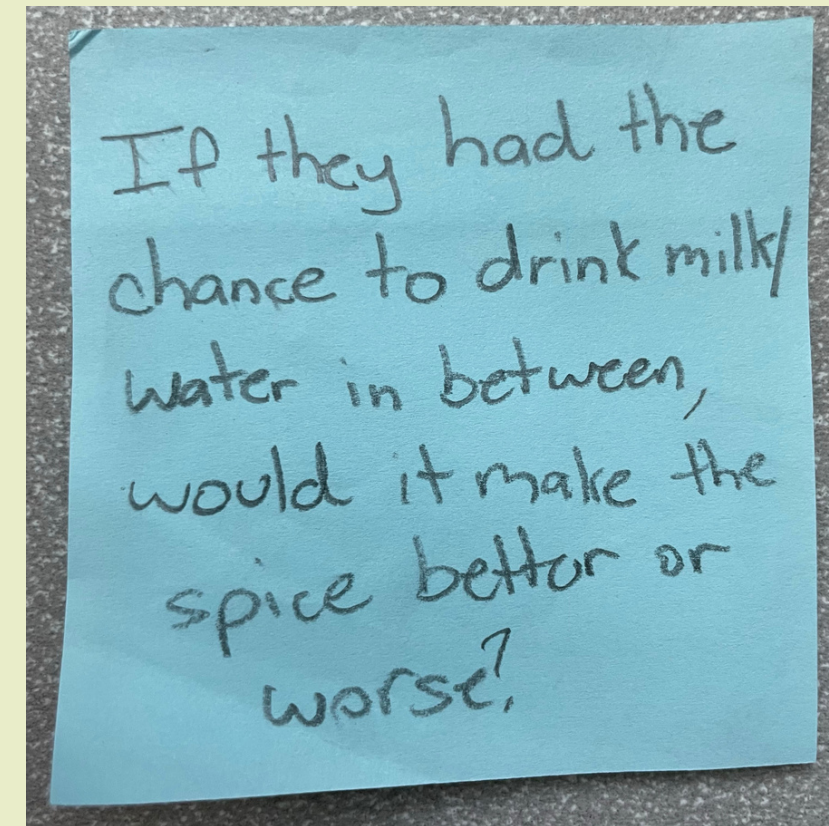 If they had the
chance to drink milk/
water in between,
would it make the
spice bettor or
worse?